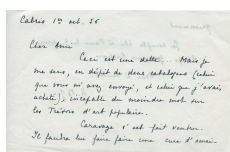 Cabris 1er oct. 56
Cher ami
Ceci est une dette. Mais je
me sens, en dépit de deux catalogues (celui
que vous m'avez envoyé, et celui que j'avais
acheté), incapable du moindre mot sur
les Trésors d'art populaire.
Caravage s'est fait
Il faudra lui faire faire une cure d'